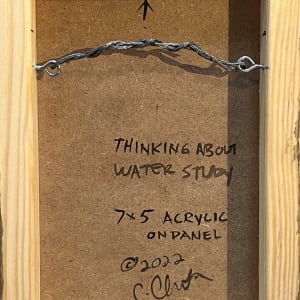 THINKING ABOUT
WATER STUDY
7x5 ACRYLIC
ON PANEL
©2022